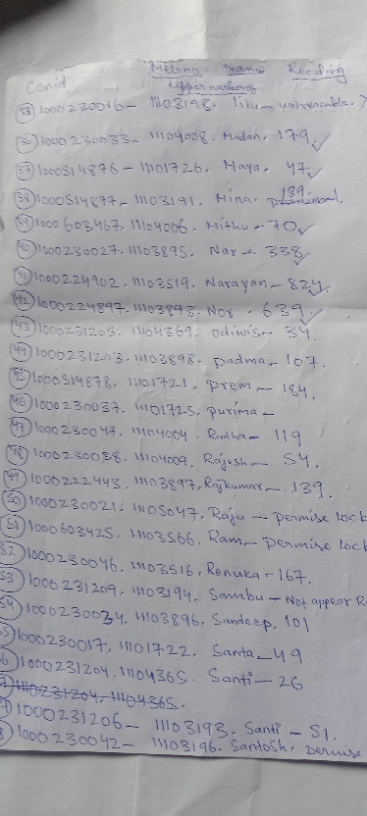 Conid Meterno Name Reading
Uppernarkong
35 1000230016 - 11103198. Tilu -
36 1000230033 - 11104008. Madan, 179
37 1000514876 - 11101726. Maya. 47
38 1000514877 - 11103191. Mina. 139.
39 1000603467, 11104006. Mithu - 70
40 1000230027. 11103895. Nar - 338
41 1000224902. 11103519. Narayan - 824
42 1000224897. 11103893. Nor - 639
43 1000231205. 11104369. Odiwis - 34
44 1000231203. 11103898. padma - 107
45 1000514878, 11101721. prem - 184
46 1000230037. 11101725. purima -
47 1000230047. 11104004. Radha - 119
48 1000230038. 11104009. Rajesh - 54.
49 1000222443. 11103897, Rajkumar - 139.
50 1000230021, 11105047. Raju - permise lock
51 1000603425. 11103566. Ram - permise lock
52 1000230046, 11103516, Renuka - 167.
53 1000231209, 11103194. Sambu - Not appear R
54 1000230034. 11103896. Sandeep, 101
55 1000230017, 11101722. Santa - 49
6 1000231204, 11104365. Santi - 26
1110231204, 11104365.
7 1000231206 - 11103193. Santi - 51.
8 1000230042 - 11103196. Santosh. permise